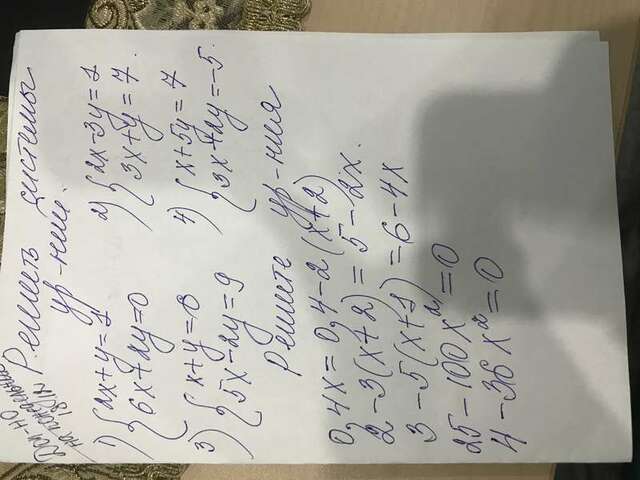 Доп-но
на понедельник
Решить системы
ур-ний.
1) { 2x+y=1
6x+2y=0
2) { 2x-3y=1
3x+y=7.
3) { x+y=8
5x-2y=9
4) { x+5y=7
3x+2y=-5.
Решите ур-ния
0,4x=0,4-2(x+2)
2-3(x+2)=5-2x.
3-5(x+1)=6-4x
25-100x²=0
4-36x²=0